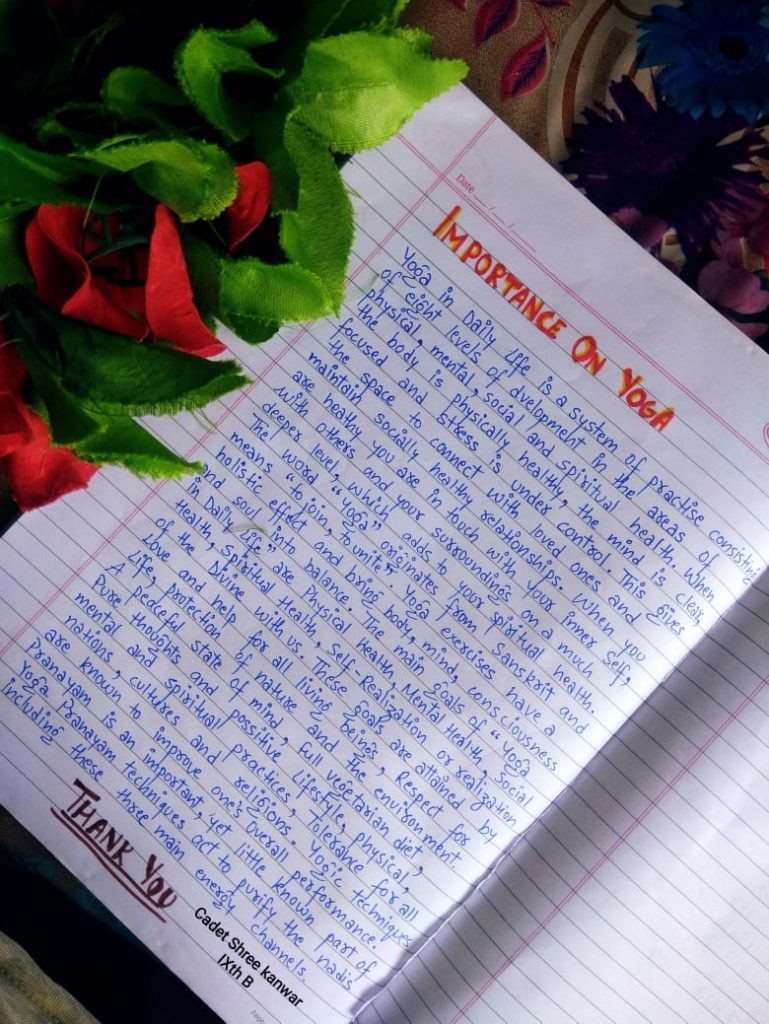 Date __/__/__
IMPORTANCE ON YOGA
Yoga in Daily Life is a system of practise consisting
of eight levels of dvelopment in the areas of
physical, mental, social and spiritual health. When
the body is physically healthy, the mind is clear,
focused and stress is under control. This gives
the space to connect with loved ones and
maintain socially healthy relationships. When you
are healthy you are in touch with your inner Self,
with others and your surroundings on a much
deeper level, which adds to your spiritual health.
The word "Yoga" originates from Sanskrit and
means "to join, to unite". Yoga exercises have a
holistic effect and bring body, mind, consciousness
and soul into balance. The main goals of "Yoga
in Daily Life" are Physical Health, Mental Health, Social
Health, Spiritual Health, Self-Realization or realization
of the Divine with us. These goals are attained by
Love and help for all living beings, Respect for
Life, protection of nature and the environment.
A peaceful state of mind, full vegetarian diet,
Pure thoughts and possitive Lifestyle, physical,
mental and spiritual practices, Tolerance for all
nations, cultures and religions. Yogic techniques
are known to improve one's overall performance.
Pranayam is an important, yet little known part of
Yoga. Pranayam techniques act to purify the nadis
Including these three main energy channels.
THANK YOU
Cadet Shree kanwar
IXth B